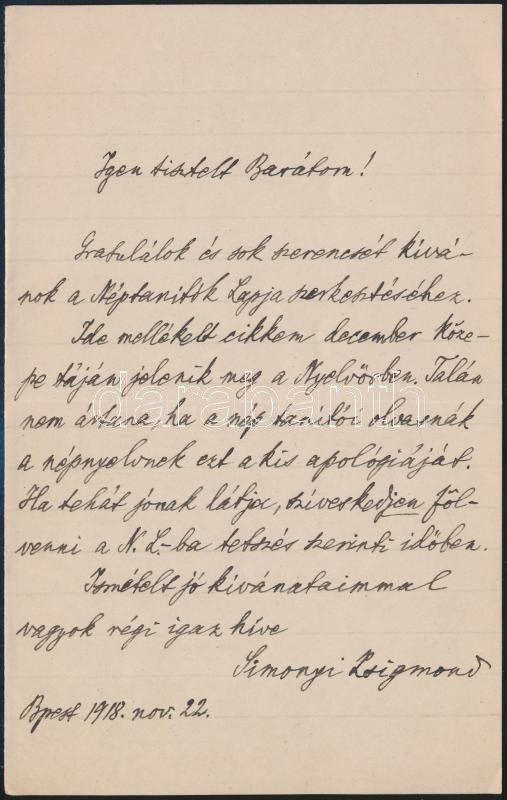 Igen tisztelt Barátom!
Gratulálok és sok szerencsét kívá-
nok a Néptanítók Lapja szerkesztéséhez.
Ide mellékelt cikkem december köze-
pe táján jelenik meg a Nyelvőrben. Talán
nem ártana, ha a nép tanítói olvasnák
a népnyelvnek ezt a kis apológiáját.
Ha tehát jónak látja, szíveskedjen föl-
venni a N. L.-ba tetszés szerinti időben.
Ismételt jó kívánataimmal
vagyok régi igaz híve
Simonyi Zsigmond
Bpest 1918. nov. 22.
darabanth